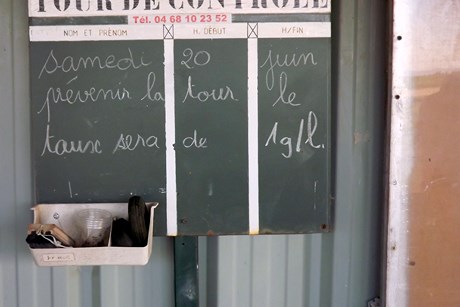 TOUR DE CONTROLE
Tél. 04 68 10 23 52
NOM ET PRÉNOM H. DÉBUT H/FIN
samedi 20 juin
prévenir la tour le
taux sera de 1g/l.